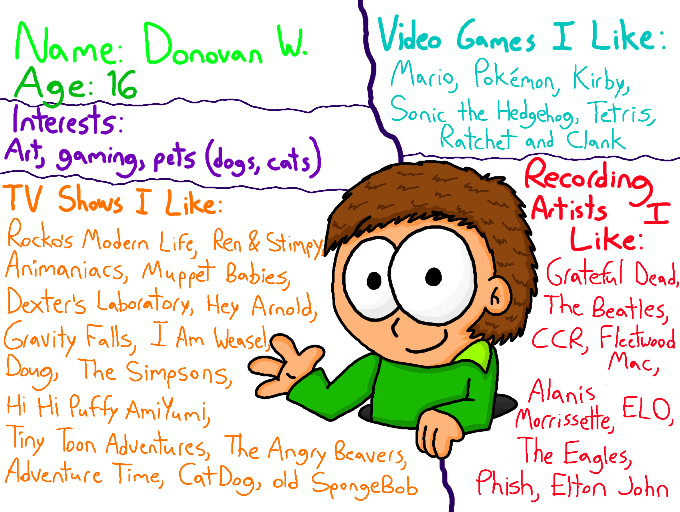 Name: Donovan W.
Age: 16
Interests:
Art, gaming, pets (dogs, cats)
TV Shows I Like:
Rocko's Modern Life, Ren & Stimpy
Animaniacs, Muppet Babies,
Dexter's Laboratory, Hey Arnold,
Gravity Falls, I Am Weasel,
Doug, The Simpsons,
Hi Hi Puffy AmiYumi,
Tiny Toon Adventures, The Angry Beavers,
Adventure Time, CatDog, old SpongeBob
Video Games I Like:
Mario, Pokémon, Kirby,
Sonic the Hedgehog, Tetris,
Ratchet and Clank
Recording
Artists I
Like:
Grateful Dead,
The Beatles,
CCR, Fleetwood
Mac,
Alanis
Morrissette, ELO,
The Eagles,
Phish, Elton John